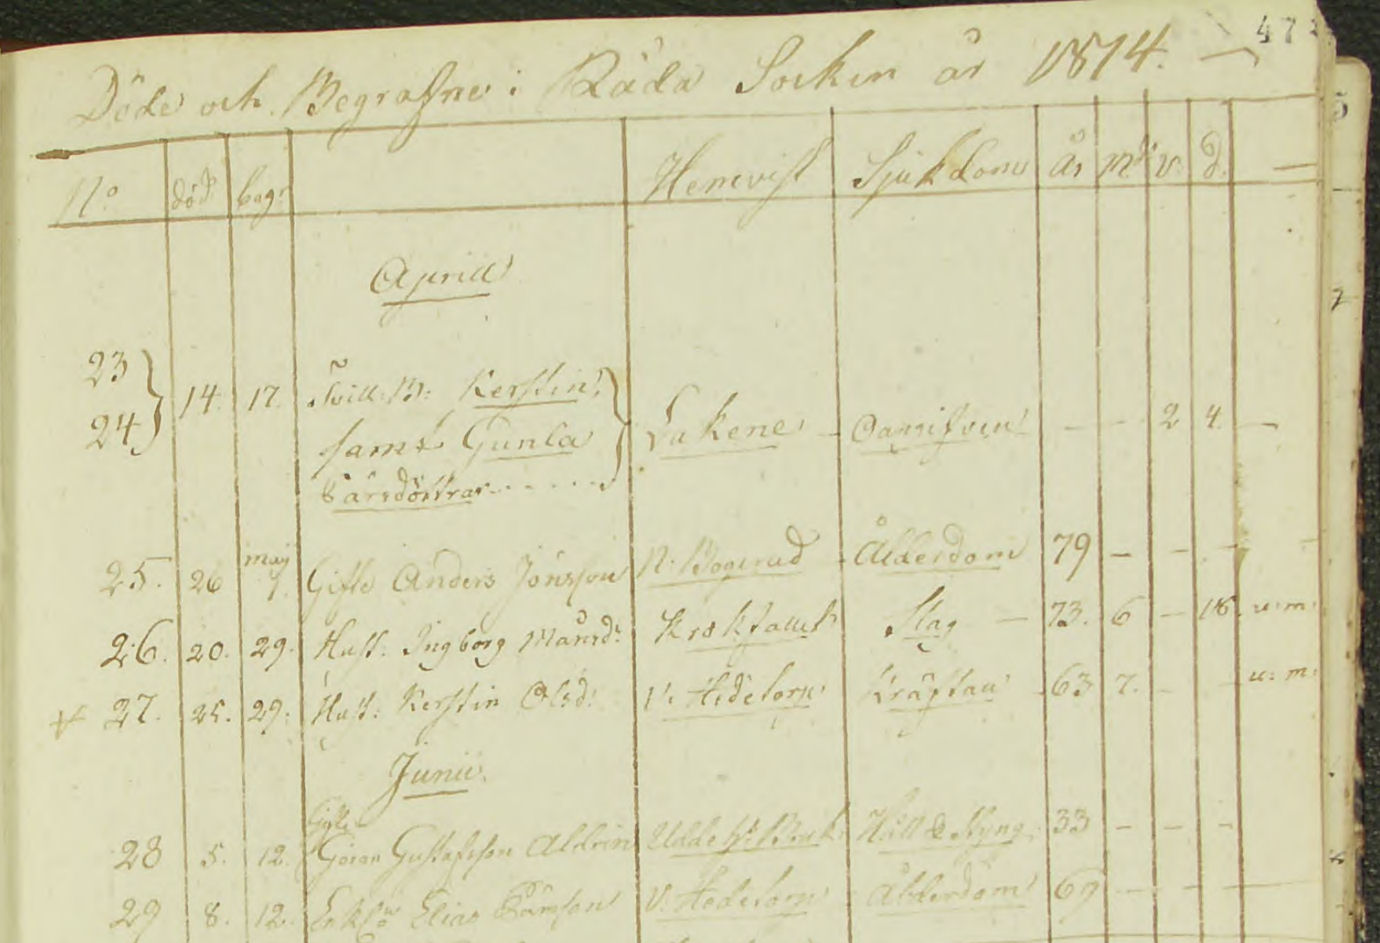 47
Döde och Begrafne i Råda Sockn år 1814.
No död. begr. Hemvist Sjukdom År Mr v. d.
Aprill
23
24 14. 17. Tvill: B: Kerstin,
samt Gunla Lukene Oangifven 2 4.
Larsdöttrar
25. 26 maj 1. Gifte Anders Jönsson N: Bogerud Ålderdom 79
26. 20. 29. Hust: Ingborg Månsd: Krokfallet Slag 73. 6 18. u: m:
27. 25. 29. Hust: Kerstin Olsd: V: Hedetorn Kräftan 63 7. u: m:
Junii.
Gifte
28 5. 12. Göran Gustafsson Aldrin Uddeh: Bruk Håll & Styng 33
29 8. 12. Enkl: Elias V: Hedetorn Ålderdom 69